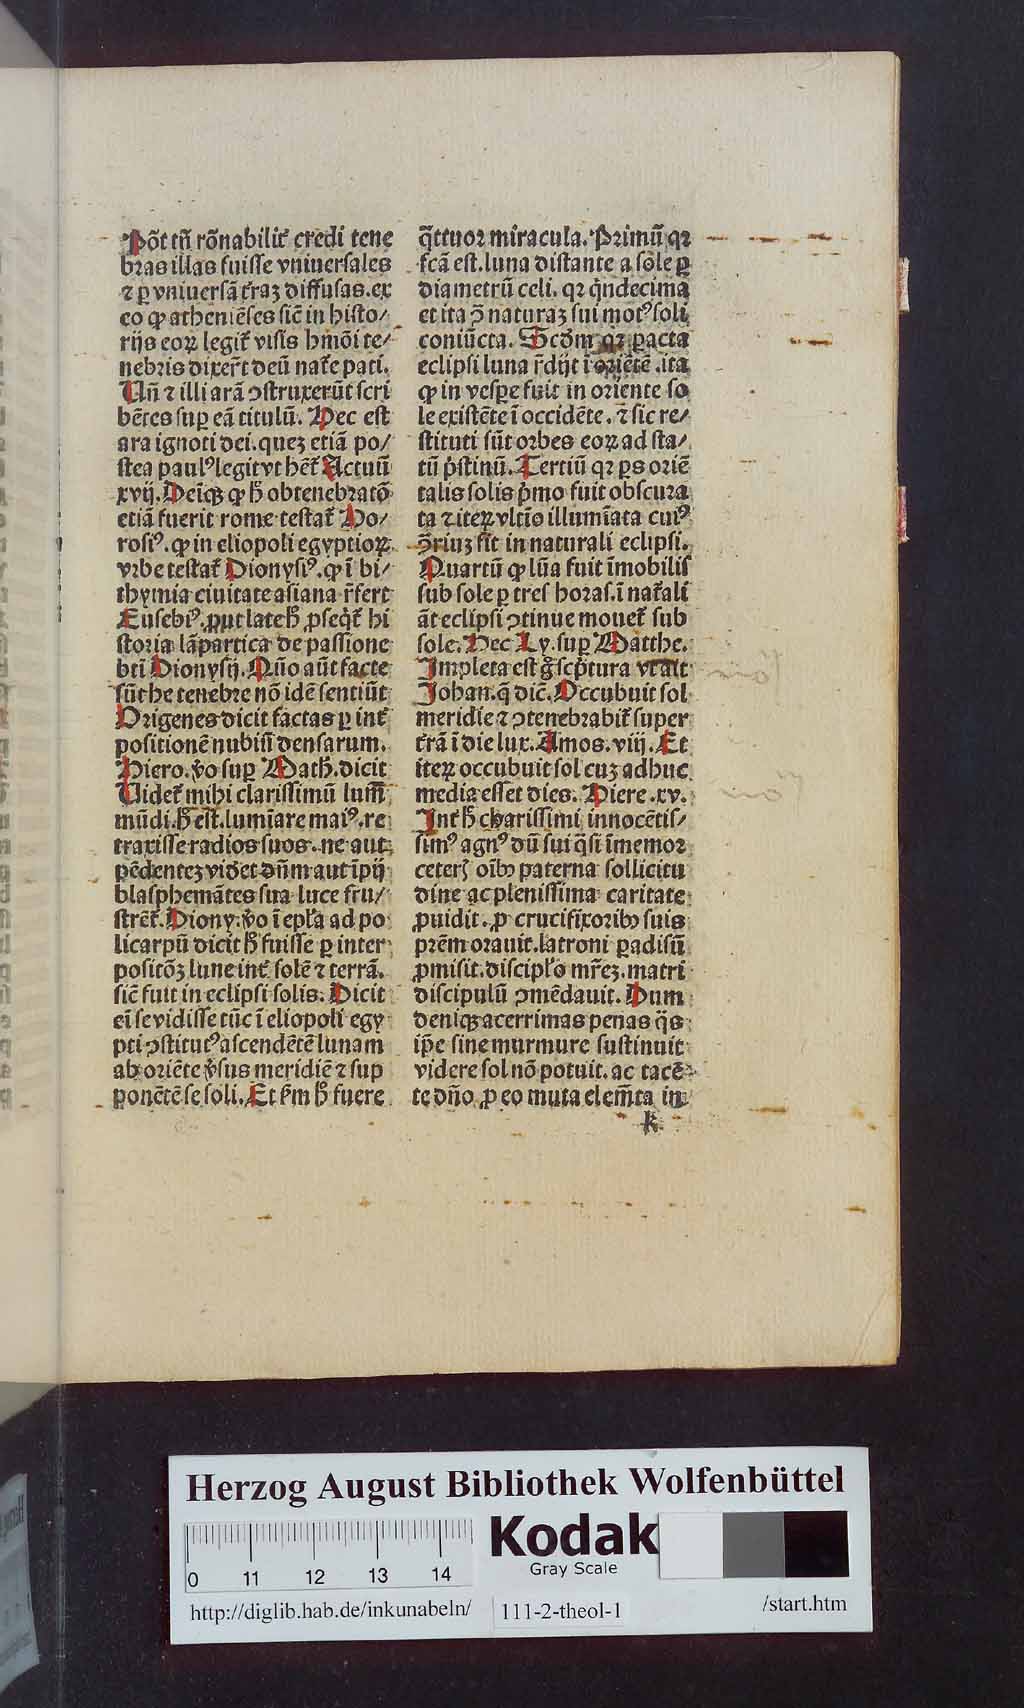 Põt tñ rõnabilit᷑ credi tene
bras illas fuisse vniuersales
⁊ ꝑ vniuersã t᷑raʒ diffusas. ex
eo ꝙ atheniẽses sic̃ in histo/
rijs eoꝝ legit᷑ visis hmõi te/
nebris dixer̃t deũ nat᷑e pati.
Vñ ⁊ illi arã ꝯstruxerũt scri
bẽtes suꝑ eã titulũ. Hec est
ara ignoti dei. queʒ etiã po/
stea paulꝰ legit vt hẽt᷑ Actuũ
xvij. Deĩqꝫ ꝙ h̾ obtenebratõ
etiã fuerit rome testat᷑ Oo/
rosiꝰ. ꝙ in eliopoli egyptioꝝ
vrbe testat᷑ Dionysiꝰ. ꝙ ĩ bi/
thymia ciuitate asiana r̃fert
Eusebiꝰ. ꝓut late h̾ ꝓseq̃t᷑ hi
storia lãpartica de passione
bt̃i Dionysij. Qũo aũt facte
sũt he tenebre nõ idẽ sentiũt
Origenes dicit factas ꝑ int᷑
positionẽ nubiũ densarum.
Hiero. v̾o suꝑ Math̃. dicit
Videt᷑ mihi clarissimũ lum̃
mũdi. h̾ est. lumĩare maiꝰ. re
traxisse radios suos. ne aut
pẽdenteʒ videt dñm aut ĩpij
blasphemãtes sua luce fru/
strẽt᷑. Diony. v̾o ĩ epl̃a ad po
licarpũ dicit h̾ fuisse ꝑ inter
positõʒ lune int᷑ solẽ ⁊ terrã.
sic̃ fuit in eclipsi solis. Dicit
eĩ se vidisse tũc ĩ eliopoli egy
pti ꝯstitutꝰ ascendẽtẽ lunam
ab oriẽte v̾sus meridiẽ ⁊ sup
ponẽtẽ se soli. Et s̃m h̾ fuere
q̃ttuor miracula. Primũ qꝛ
fcã est. luna distante a sole ꝑ
diametrũ celi. qꝛ q̃ndecima
et ita ꝯ̃ naturaʒ sui motꝰ soli
coniũcta. Scd̃m qꝛ ꝑacta
eclipsi luna r̃dijt ĩ oriẽtẽ. ita
ꝙ in vesꝑe fuit in oriente so
le existẽte ĩ occidẽte. ⁊ sic re/
stituti sũt orbes eoꝝ ad sta/
tũ p̃stinũ. Tertiũ qꝛ ps oriẽ
talis solis p̃mo fuit obscura
ta ⁊ iteꝝ vltĩo illumĩata cuiꝰ
ꝯ̃riuʒ fit in naturali eclipsi.
Quartũ ꝙ lũa fuit ĩmobilis
sub sole ꝑ tres horas. ĩ nat᷑ali
ãt eclipsi ꝯtinue mouet᷑ sub
sole. Hec Ly. suꝑ Matthe.
Impleta est g̃ scp̃tura vt ait
Johan. q̃ dic̃. Occubuit sol
meridie ⁊ ꝯtenebrabit᷑ super
t᷑rã ĩ die lux. Amos. viij. Et
iteꝝ occubuit sol cuʒ adhuc
media esset dies. Hiere. xv.
Int᷑ h̾ charissimi innocẽtis/
simꝰ agnꝰ dũ sui q̃si ĩmemor
ceterꝭ oĩbꝫ paterna sollicitu
dine ac plenissima caritate
ꝓuidit. ꝓ crucifixoribꝫ suis
prẽm orauit. latroni ꝑadisũ
ꝓmisit. discipl̃o mr̃eʒ. matri
discipulũ ꝯmẽdauit. Dum
deniqꝫ acerrimas penas q̃s
ip̃e sine murmure sustinuit
videre sol nõ potuit. ac tacẽ
te dño ꝓ eo muta elem̃ta in
k
Herzog August Bibliothek Wolfenbüttel
0 11 12 13 14
Kodak
Gray Scale
http://diglib.hab.de/inkunabeln/ 111-2-theol-1 /start.htm